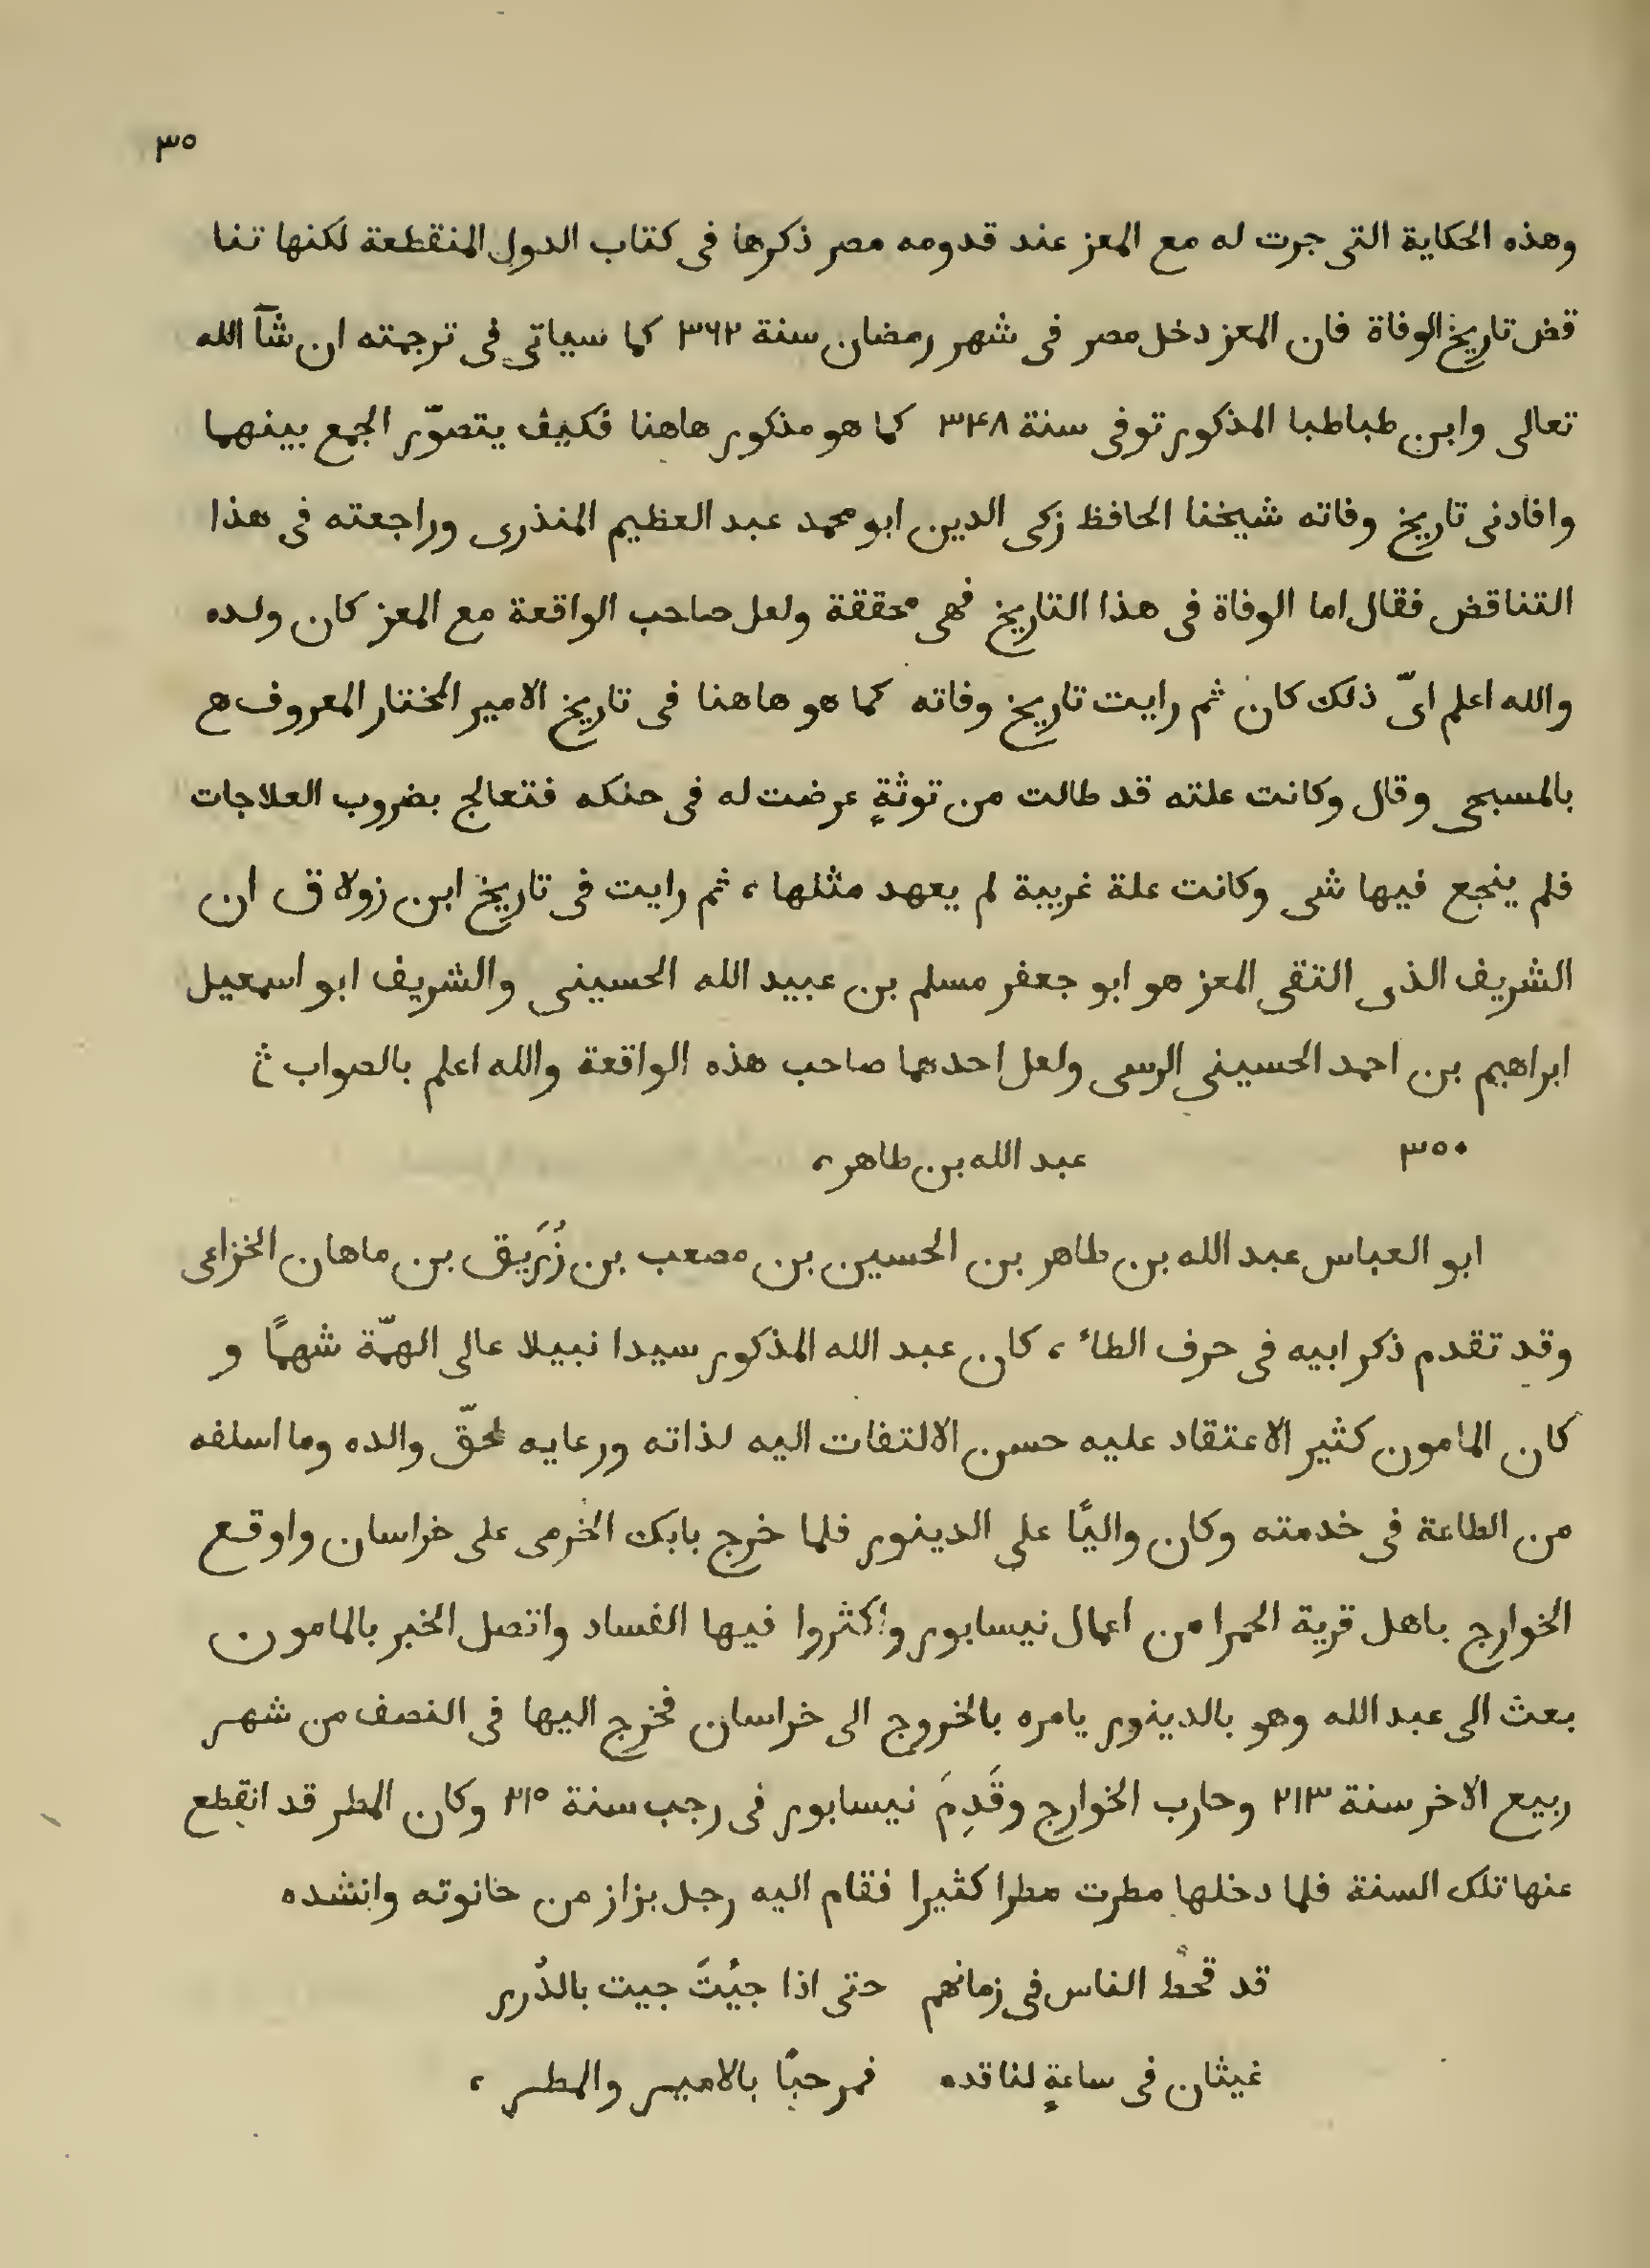 ٣٥
وهذه الحكاية التى جرت له مع المعز عند قدومه مصر ذكرها فى كتاب الدول المنقطعة لكنها تنا
قض تاريخ الوفاة فان المعز دخل مصر فى شهر رمضان سنة ٣٦٢ كما سياتى فى ترجمته ان شآ الله
تعالى وابن طباطبا المذكور توفى سنة ٣٤٨ كما هو مذكور هاهنا فكيف يتصوّر الجمع بينهما
وافادنى تاريخ وفاته شيخنا الحافظ زكى الدين ابو محمد عبد العظيم المنذرى وراجعته فى هذا
التناقض فقال اما الوفاة فى هذا التاريخ فهى محققة ولعل صاحب الواقعة مع المعز كان ولده
والله اعلم اىّ ذلك كان ثم رايت تاريخ وفاته كما هو هاهنا فى تاريخ الامير المختار المعروف
بالمسبحى وقال وكانت علته قد طالت من توثةٍ عرضت له فى حنكه فتعالج بضروب العلاجات
فلم ينجع فيها شى وكانت علة غريبة لم يعهد مثلها، ثم رايت فى تاريخ ابن زولاق ان
الشريف الذى التقى المعز هو ابو جعفر مسلم بن عبيد الله الحسينى والشريف ابو اسمعيل
ابراهيم بن احمد الحسينى الرسى ولعل احدهما صاحب هذه الواقعة والله اعلم بالصواب
٣٥٠ عبد الله بن طاهر،
ابو العباس عبد الله بن طاهر بن الحسين بن مصعب بن زُرَيق بن ماهان الخزاعى
وقد تقدم ذكر ابيه فى حرف الطاء، كان عبد الله المذكور سيدا نبيلا عالى الهمّة شهمًا و
كان المامون كثير الاعتقاد عليه حسن الالتفات اليه لذاته ورعايه لحقّ والده وما اسلفه
من الطاعة فى خدمته وكان واليًا على الدينور فلما خرج بابك الخرمى على خراسان واوقع
الخوارج باهل قرية الحمرا من اعمال نيسابور واكثروا فيها الفساد واتصل الخبر بالمامون
بعث الى عبد الله وهو بالدينور يامره بالخروج الى خراسان فخرج اليها فى النصف من شهر
ربيع الاخر سنة ٢١٣ وحارب الخوارج وقَدِمَ نيسابور فى رجب سنة ٢١٥ وكان المطر قد انقطع
عنها تلك السنة فلما دخلها مطرت مطرا كثيرا فقام اليه رجل بزاز من حانوته وانشده
قد قحط الناس فى زمانهم حتى اذا جيُتَ جيت بالدُرر
غيثان فى ساعةٍ لنا قدم فمرحبًا بالامير والمطر،